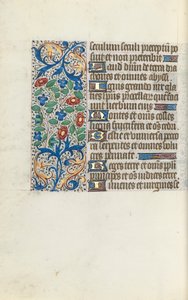 seculum seculi preceptū po
suit et non preteribit
Laudate dnm de terra dra
cones et omnes abyssi
Ignis grando nix gla
cies spūs procellarū que faci
unt verbum eius
Montes et omnes colles
ligna fructifera et oēs cedri
Bestie et universa peco
ra serpentes et volucres
pennate
Reges terre et oēs ppli
principes et oēs iudices terre
Iuvenes et virgines se